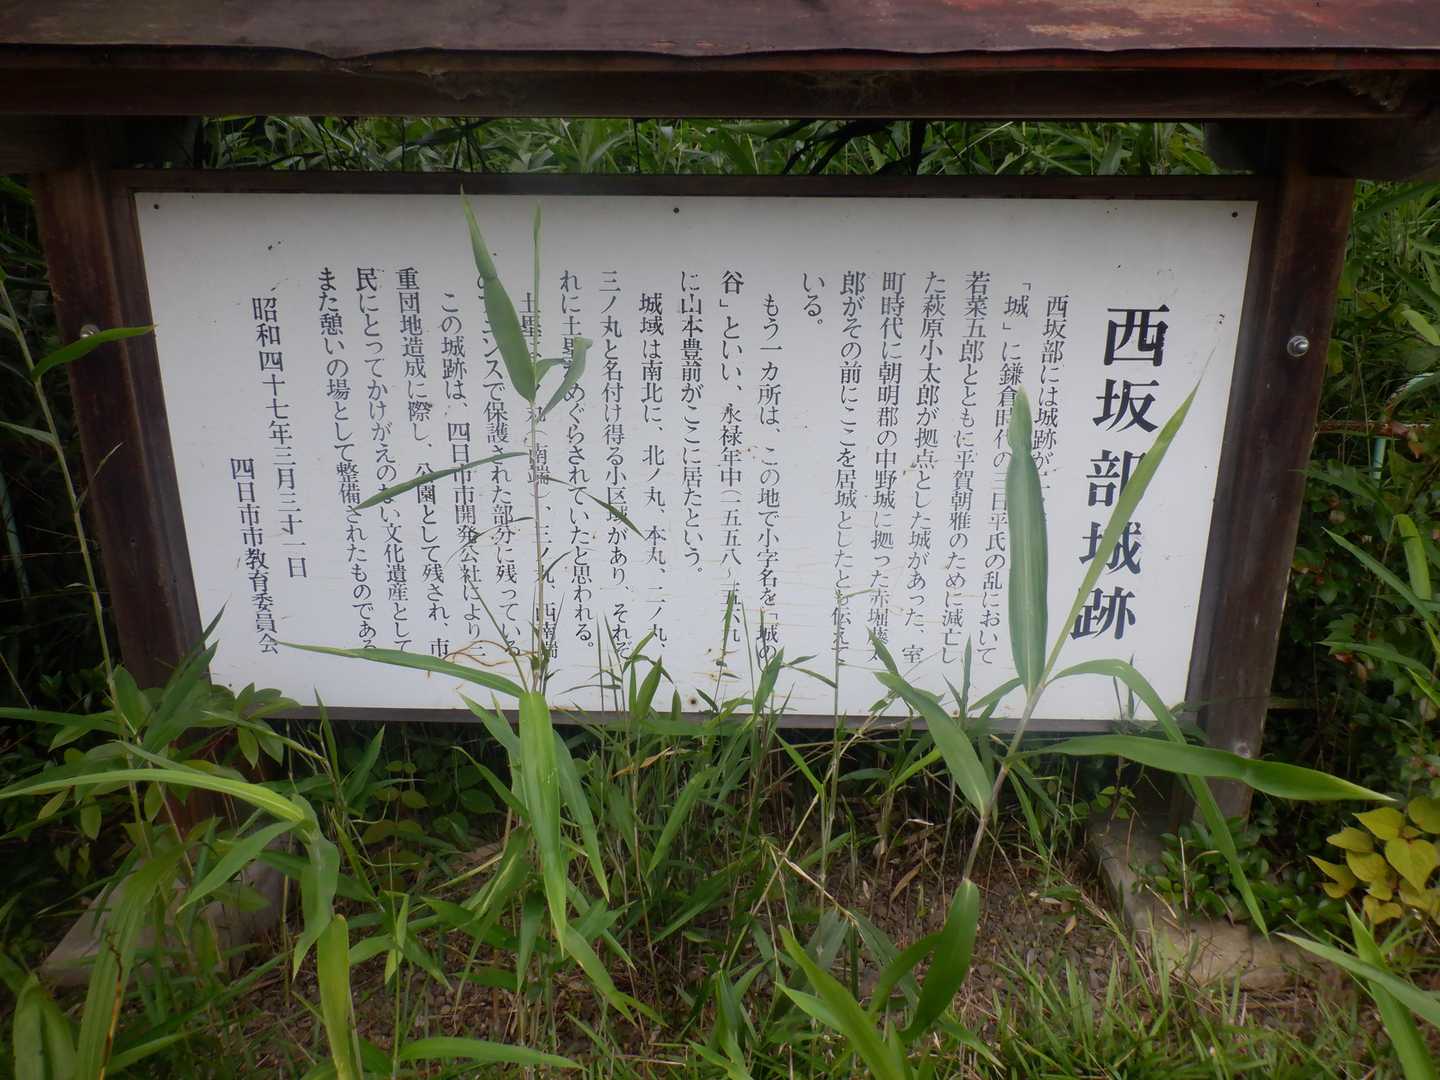 西坂部城跡
西坂部には城跡が
「城」に鎌倉時代の三日平氏の乱において
若菜五郎とともに平賀朝雅のために滅亡し
た萩原小太郎が拠点とした城があった、室
町時代に朝明郡の中野城に拠った赤堀藤太
郎がその前にここを居城としたとも伝えて
いる。
もう一カ所は、この地で小字名を「城の
谷」といい、永禄年中(一五五八〜一五六九)
に山本豊前がここに居たという。
城域は南北に、北ノ丸、本丸、二ノ丸、
三ノ丸と名付け得る小区域があり、それぞ
れに土塁がめぐらされていたと思われる。
土塁 (南端)、三ノ丸、西南端
のフェンスで保護された部分に残っている
この城跡は、四日市市開発公社により三
重団地造成に際し、公園として残され、市
民にとってかけがえのない文化遺産として
また憩いの場として整備されたものである
昭和四十七年三月三十一日
四日市市教育委員会